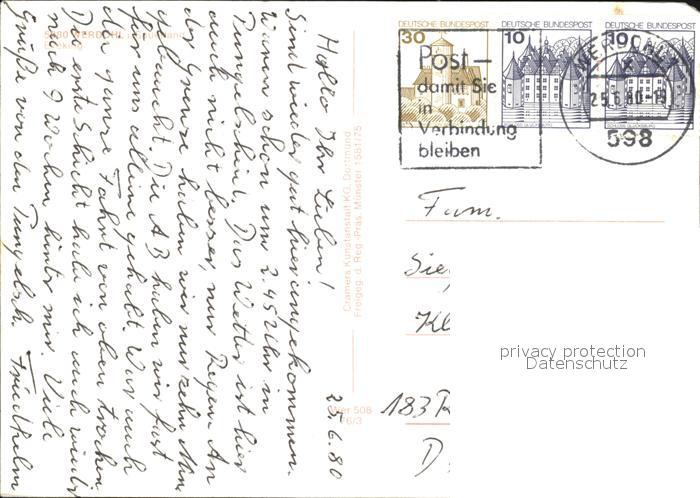 DEUTSCHE BUNDESPOST
30
DEUTSCHE BUNDESPOST
10
DEUTSCHE BUNDESPOST
10
Post –
damit Sie
in
Verbindung
bleiben
WERDOHL 1
25.6.80-19
598
5980 WERDOHL
25.6.80
Hallo Ihr Lieben!
Sind wieder gut hier angekommen.
Waren schon um 2.45 Uhr in
Das Wetter ist hier
auch nicht besser, nur Regen. An
der Grenze haben wir nur zehn Min
gebraucht. Die AB haben wir fast
für uns alleine gehabt. War auch
die ganze Fahrt von oben trocken.
Die erste Schicht habe ich auch wieder
nach 9 Wochen hinter mir. Viele
Grüße von den Friedhelm
Cramers Kunstanstalt KG, Dortmund
Freigeg. d. Reg.-Präs. Münster 1581/75
Wer 508
76/3
Fam.
183
D
privacy protection
Datenschutz